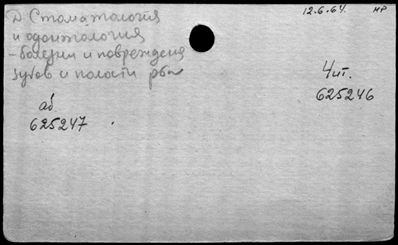 Д. Стоматология
12.6.64. НР
и одонтология
- болезни и повреждения
зубов и полости рта
Чит.
625246
аб.
625247